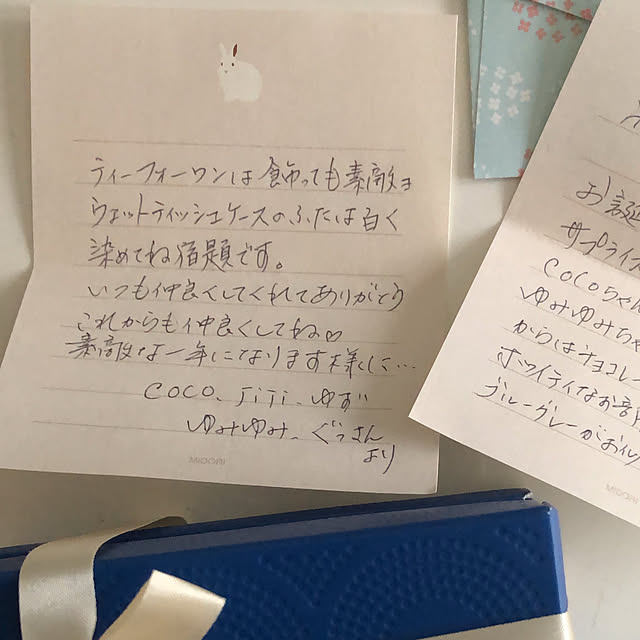 ティーフォーワンは飾っても素敵ョ
ウェットティッシュケースのふたは白く
染めてね宿題です。
いつも仲良くしてくれてありがとう
これからも仲良くしてね♡
素敵な一年になります様に…
COCO、JIJI、ゆず
ゆみゆみ、ぐっさん
より
MIDORI
お誕
サプライズ
COCOちゃん
ゆみゆみちゃ
からはチョコレー
ホワイティなお部
ブルーグレーがお似
MIDORI